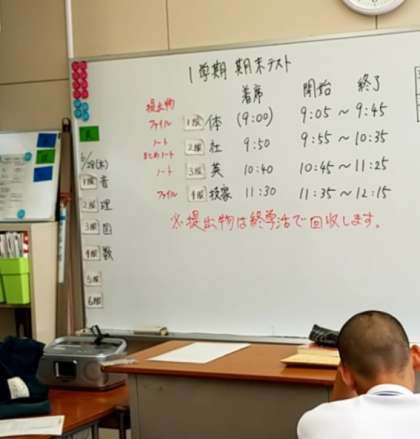 1学期 期末テスト
提出物 着席 開始 終了
ファイル 1限 体 (9:00) 9:05 ~ 9:45
ノート まとめノート 2限 社 9:50 9:55 ~ 10:35
ノート 3限 英 10:40 10:45 ~ 11:25
ファイル 4限 技家 11:30 11:35 ~ 12:15
※提出物は終学活で回収します。
1限 音
2限 理
3限 国
4限 数
5限
6限